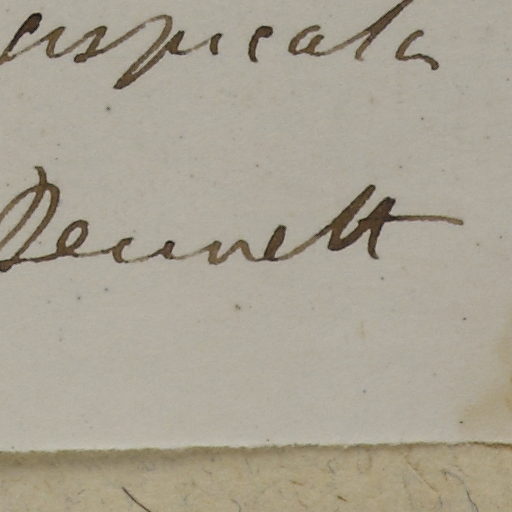 cuspicata
Bennett